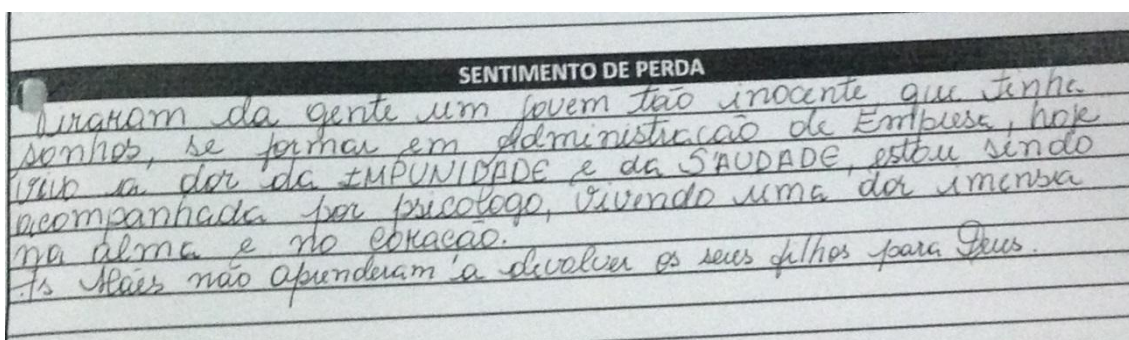 SENTIMENTO DE PERDA
Tiraram da gente um jovem tão inocente que tinha
sonhos, se formar em Administração de Empresa, hoje
vivo a dor da IMPUNIDADE e da SAUDADE, estou sendo
acompanhada por psicologo, vivendo uma dor imensa
na alma e no coração.
As Mães não aprenderam a devolver os seus filhos para Deus.